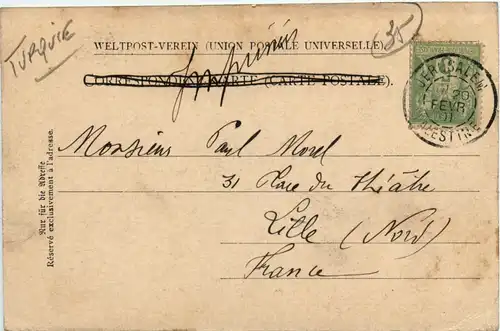 TURQUIE
35
WELTPOST-VEREIN (UNION POSTALE UNIVERSELLE)
Imprimés
CORRESPONDENZKARTE (CARTE POSTALE).
JERUSALEM
FEVR
PALESTINE
Monsieur Paul Morel
31 Place du Théâtre
Lille (Nord)
France
Nur für die Adresse
Réservé exclusivement à l'adresse.